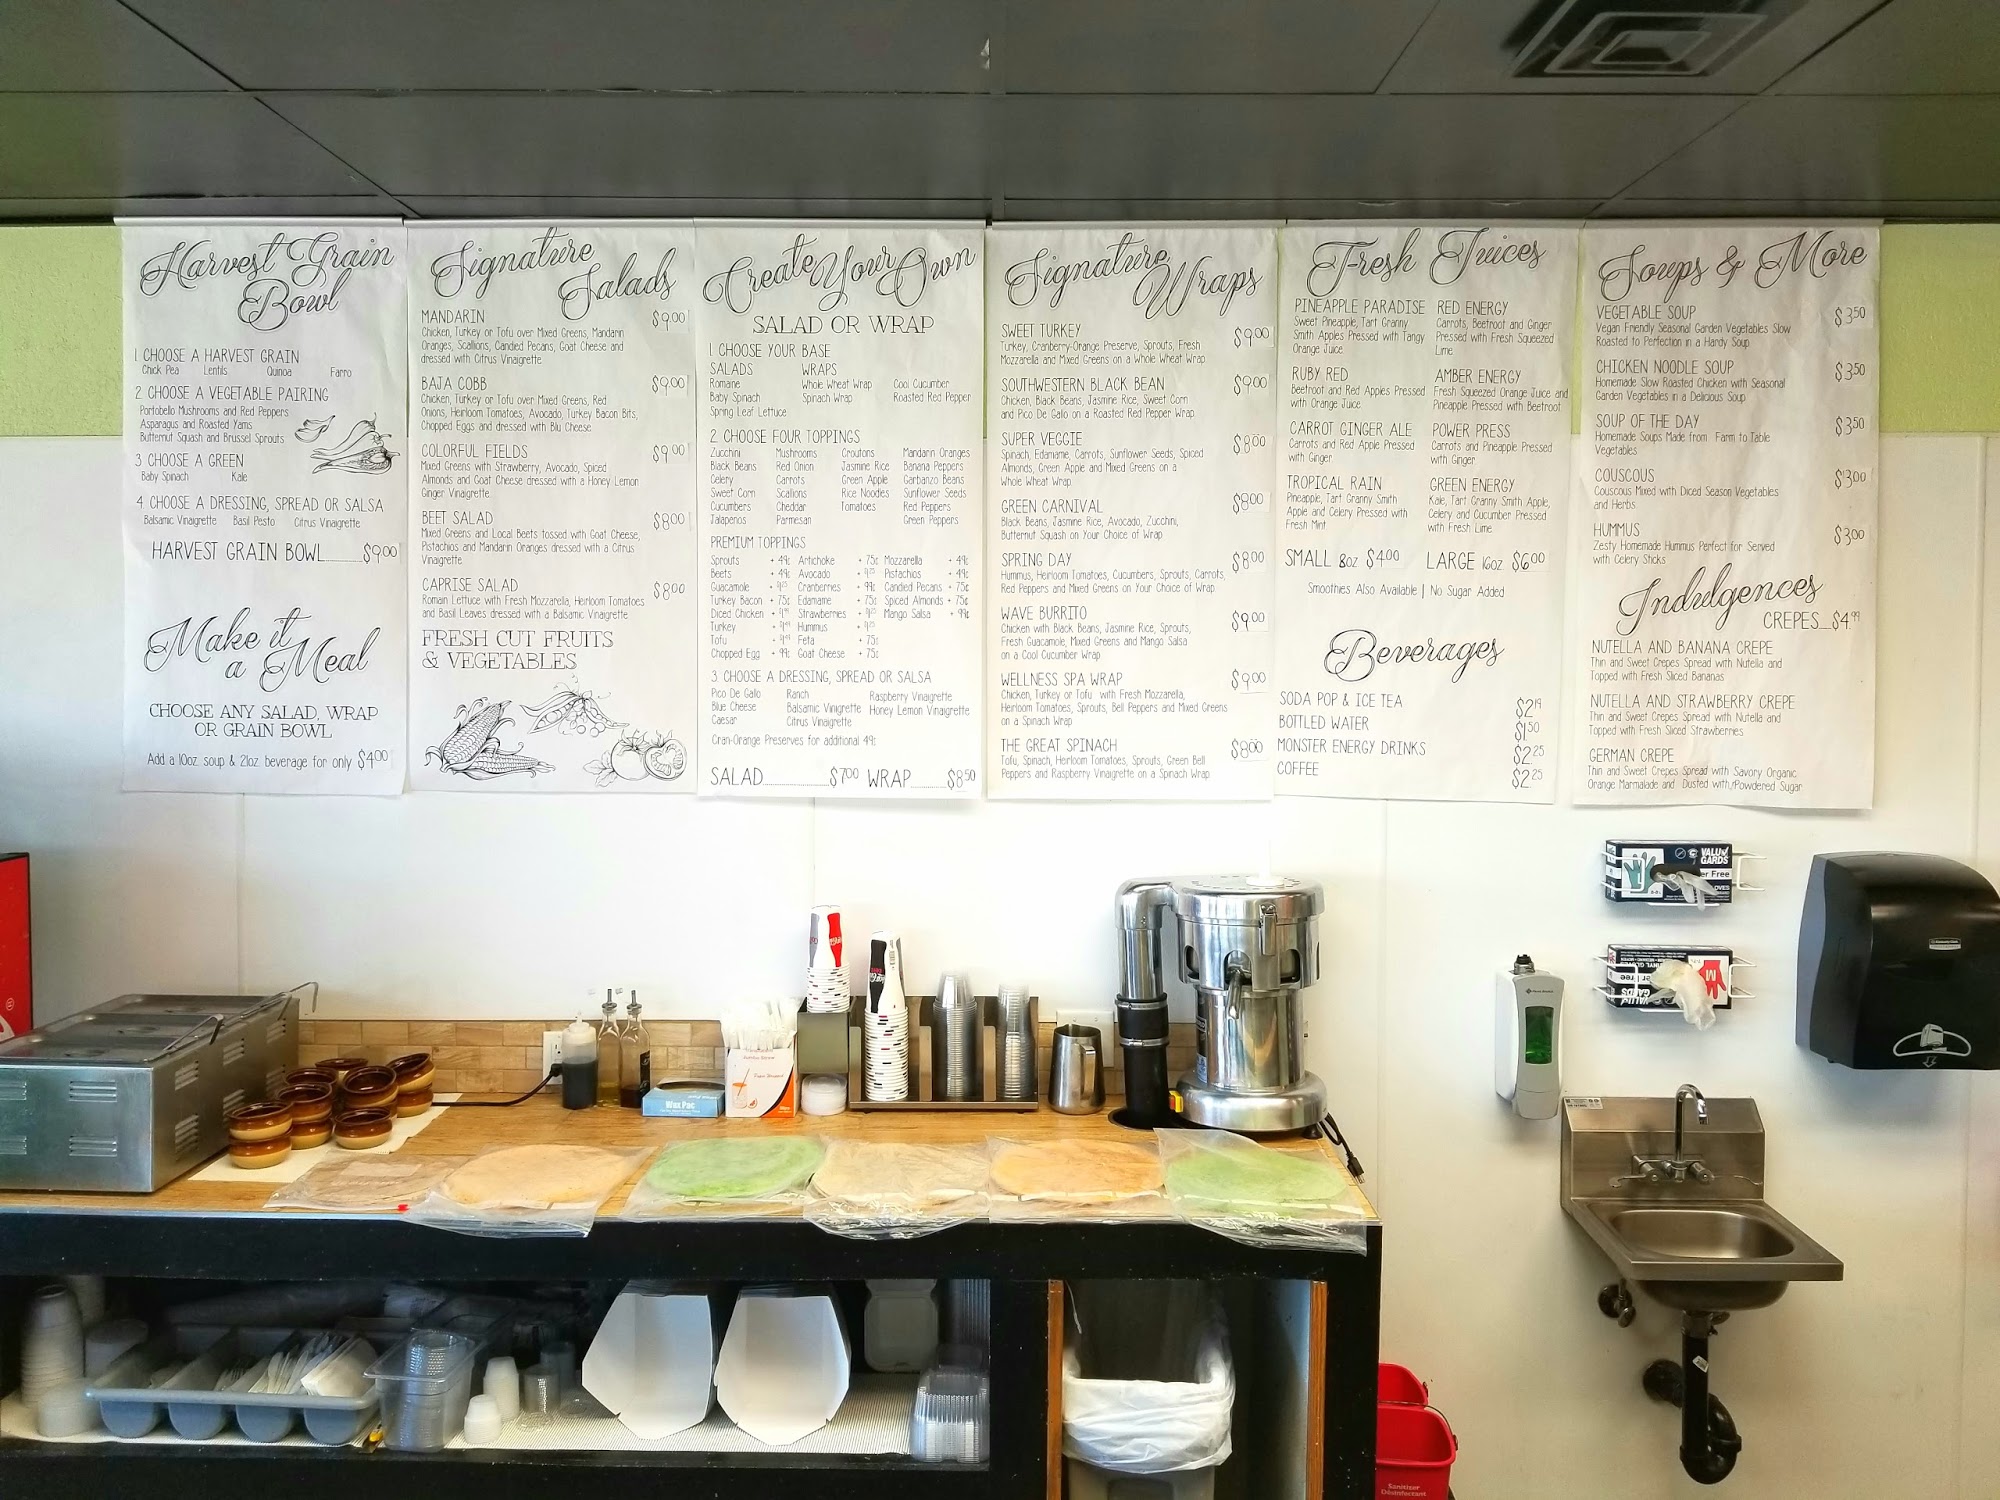 Harvest Grain
Bowl
1 CHOOSE A HARVEST GRAIN
Chick Pea Lentils Quinoa Farro
2 CHOOSE A VEGETABLE PAIRING
Portobello Mushrooms and Red Peppers
Asparagus and Roasted Yams
Butternut Squash and Brussel Sprouts
3 CHOOSE A GREEN
Baby Spinach Kale
4 CHOOSE A DRESSING, SPREAD OR SALSA
Balsamic Vinaigrette Basil Pesto Citrus Vinaigrette
HARVEST GRAIN BOWL $9.00
Make it
a Meal
CHOOSE ANY SALAD, WRAP
OR GRAIN BOWL
Add a 10oz. soup & 21oz. beverage for only $4.00
Signature
Salads
MANDARIN $9.00
Chicken, Turkey or Tofu over Mixed Greens, Mandarin
Oranges, Scallions, Candied Pecans, Goat Cheese and
dressed with Citrus Vinaigrette
BAJA COBB $9.00
Chicken, Turkey or Tofu over Mixed Greens, Red
Onions, Heirloom Tomatoes, Avocado, Turkey Bacon Bits,
Chopped Eggs and dressed with Blu Cheese
COLORFUL FIELDS $9.00
Mixed Greens with Strawberry, Avocado, Spiced
Almonds and Goat Cheese dressed with a Honey Lemon
Ginger Vinaigrette
BEET SALAD $8.00
Mixed Greens and Local Beets tossed with Goat Cheese,
Pistachios and Mandarin Oranges dressed with a Citrus
Vinaigrette
CAPRISE SALAD $8.00
Romain Lettuce with Fresh Mozzarella, Heirloom Tomatoes
and Basil Leaves dressed with a Balsamic Vinaigrette
FRESH CUT FRUITS
& VEGETABLES
Create Your Own
SALAD OR WRAP
1 CHOOSE YOUR BASE
SALADS WRAPS
Romaine Whole Wheat Wrap Cool Cucumber
Baby Spinach Spinach Wrap Roasted Red Pepper
Spring Leaf Lettuce
2 CHOOSE FOUR TOPPINGS
Zucchini Mushrooms Croutons Mandarin Oranges
Black Beans Red Onion Jasmine Rice Banana Peppers
Celery Carrots Green Apple Garbanzo Beans
Sweet Corn Scallions Rice Noodles Sunflower Seeds
Cucumbers Cheddar Tomatoes Red Peppers
Jalapenos Parmesan Green Peppers
PREMIUM TOPPINGS
Sprouts + 49¢ Artichoke + 75¢ Mozzarella + 49¢
Beets + 49¢ Avocado Pistachios + 49¢
Guacamole Cranberries + 99¢ Candied Pecans + 75¢
Turkey Bacon + 75¢ Edamame + 75¢ Spiced Almonds + 75¢
Diced Chicken Strawberries Mango Salsa + 99¢
Turkey Hummus
Tofu Feta + 75¢
Chopped Egg + 99¢ Goat Cheese + 75¢
3 CHOOSE A DRESSING, SPREAD OR SALSA
Pico De Gallo Ranch Raspberry Vinaigrette
Blue Cheese Balsamic Vinigrette Honey Lemon Vinaigrette
Caesar Citrus Vinaigrette
Cran-Orange Preserves for additional 49¢
SALAD $7.00 WRAP $8.50
Signature
Wraps
SWEET TURKEY $9.00
Turkey, Cranberry-Orange Preserve, Sprouts, Fresh
Mozzarella and Mixed Greens on a Whole Wheat Wrap
SOUTHWESTERN BLACK BEAN $9.00
Chicken, Black Beans, Jasmine Rice, Sweet Corn
and Pico De Gallo on a Roasted Red Pepper Wrap
SUPER VEGGIE $8.00
Spinach, Edamame, Carrots, Sunflower Seeds, Spiced
Almonds, Green Apple and Mixed Greens on a
Whole Wheat Wrap
GREEN CARNIVAL $8.00
Black Beans, Jasmine Rice, Avocado, Zucchini,
Butternut Squash on Your Choice of Wrap
SPRING DAY $8.00
Hummus, Heirloom Tomatoes, Cucumbers, Sprouts, Carrots,
Red Peppers and Mixed Greens on Your Choice of Wrap
WAVE BURRITO $9.00
Chicken with Black Beans, Jasmine Rice, Sprouts,
Fresh Guacamole, Mixed Greens and Mango Salsa
on a Cool Cucumber Wrap
WELLNESS SPA WRAP $9.00
Chicken, Turkey or Tofu with Fresh Mozzarella,
Heirloom Tomatoes, Sprouts, Bell Peppers and Mixed Greens
on a Spinach Wrap
THE GREAT SPINACH $8.00
Tofu, Spinach, Heirloom Tomatoes, Sprouts, Green Bell
Peppers and Raspberry Vinaigrette on a Spinach Wrap
Fresh Juices
PINEAPPLE PARADISE
Sweet Pineapple, Tart Granny
Smith Apples Pressed with Tangy
Orange Juice
RED ENERGY
Carrots, Beetroot and Ginger
Pressed with Fresh Squeezed
Lime
RUBY RED
Beetroot and Red Apples Pressed
with Orange Juice
AMBER ENERGY
Fresh Squeezed Orange Juice and
Pineapple Pressed with Beetroot
CARROT GINGER ALE
Carrots and Red Apple Pressed
with Ginger
POWER PRESS
Carrots and Pineapple Pressed
with Ginger
TROPICAL RAIN
Pineapple, Tart Granny Smith
Apple and Celery Pressed with
Fresh Mint
GREEN ENERGY
Kale, Tart Granny Smith Apple,
Celery and Cucumber Pressed
with Fresh Lime
SMALL 8oz $4.00 LARGE 16oz $6.00
Smoothies Also Available | No Sugar Added
Beverages
SODA POP & ICE TEA $2.19
BOTTLED WATER $1.50
MONSTER ENERGY DRINKS $2.25
COFFEE $2.25
Soups & More
VEGETABLE SOUP $3.50
Vegan Friendly Seasonal Garden Vegetables Slow
Roasted to Perfection in a Hardy Soup
CHICKEN NOODLE SOUP $3.50
Homemade Slow Roasted Chicken with Seasonal
Garden Vegetables in a Delicious Soup
SOUP OF THE DAY $3.50
Homemade Soups Made from Farm to Table
Vegetables
COUSCOUS $3.00
Couscous Mixed with Diced Season Vegetables
and Herbs
HUMMUS $3.00
Zesty Homemade Hummus Perfect for Served
with Celery Sticks
Indulgences
CREPES $4.99
NUTELLA AND BANANA CREPE
Thin and Sweet Crepes Spread with Nutella and
Topped with Fresh Sliced Bananas
NUTELLA AND STRAWBERRY CREPE
Thin and Sweet Crepes Spread with Nutella and
Topped with Fresh Sliced Strawberries
GERMAN CREPE
Thin and Sweet Crepes Spread with Savory Organic
Orange Marmalade and Dusted with Powdered Sugar
VALU
GARDS
Free
M
Wax Pac
Sanitizer
Disinfectant